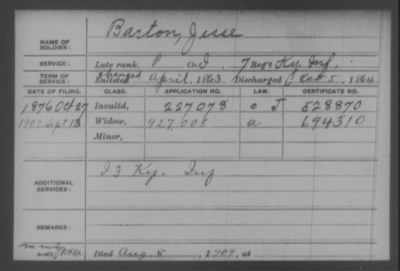 NAME OF SOLDIER: Barton, Jesse
SERVICE: Late rank, P Co. I, 7 Reg't Ky. Inf.
TERM OF SERVICE: Enlisted April, 1863 Discharged Oct 5, 1864
DATE OF FILING. CLASS. APPLICATION NO. LAW. CERTIFICATE NO.
1876 Oct 27 Invalid, 227078 J 528870
1909 Sept 13 Widow, 927,008 a 694310
Minor,
ADDITIONAL SERVICES: I 3 Ky. Inf
REMARKS:
Died Aug. 5, 1909, at